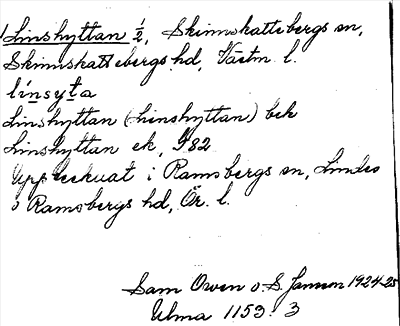 Linshyttan ½, Skinnskattebergs sn,
Skinnskattebergs hd, Västm. l.
línsy̱ta
Linshyttan (Linshyttan) bek
Linshyttan ek, J82
Upptecknat i Ramsbergs sn, Lindes
o Ramsbergs hd, Ör. l.
Sam Owen o. S. Janson 1924-25
Ulma 1153: 3